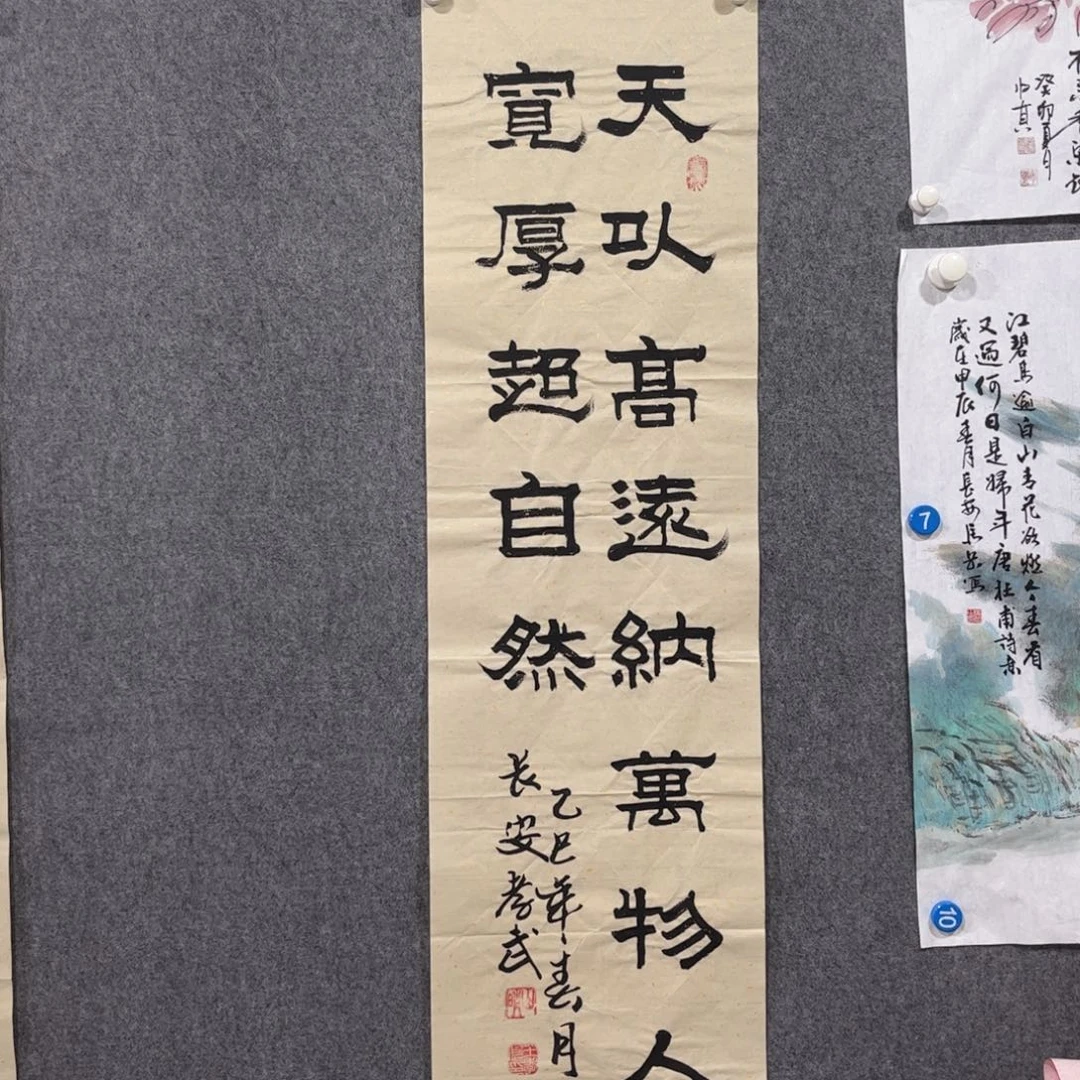 天以高遠納萬物人
寬厚超自然
乙巳年春月
长安孝武
癸卯夏月
江碧鸟逾白山青花欲燃今春看
又過何日是歸年唐杜甫詩意
歲在甲辰春月長安
7
10